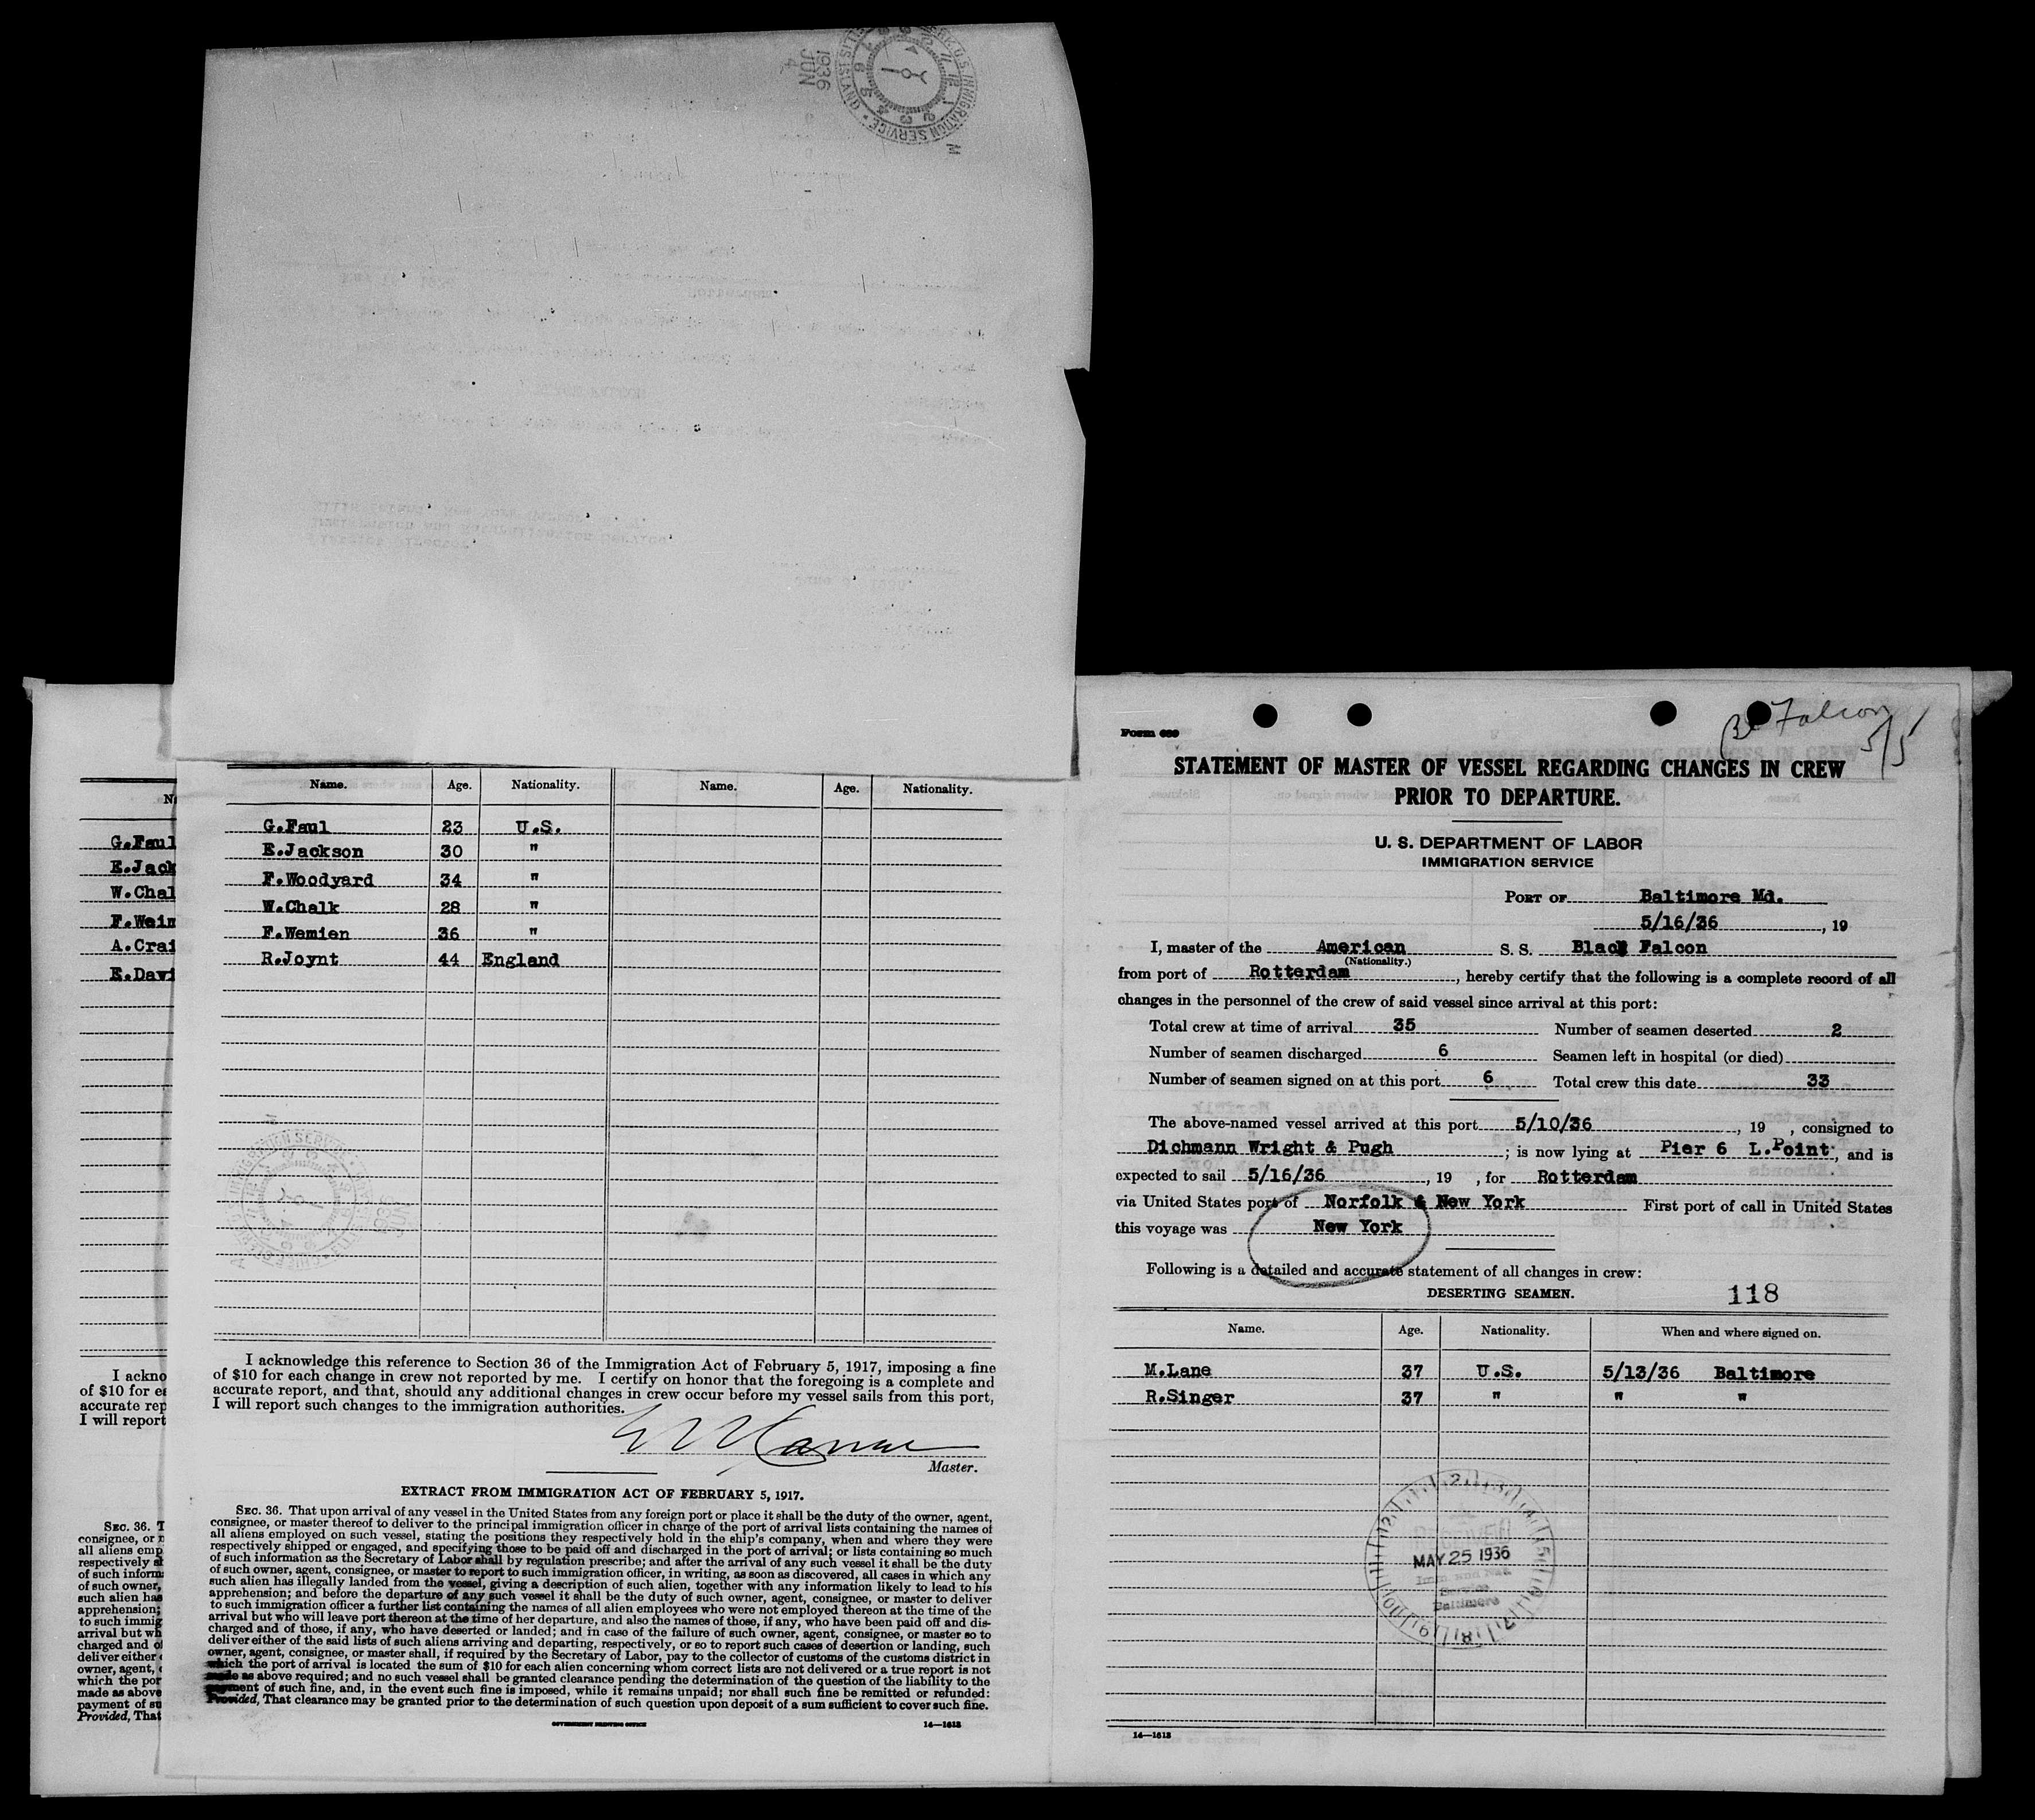 1936
JUN
4
U.S. IMMIGRATION SERVICE
ISLAND
M
G.Faul
E.Jack
W.Chal
F.Wein
A.Crai
E.Davi
I ackno
of $10 for ea
accurate rep
I will report
SEC. 36. T
consignee, or m
all aliens emp
respectively sh
of such inform
of such owner,
such alien has
apprehension;
to such immig
arrival but wh
charged and of
deliver either o
owner, agent, c
which the por
made as above
payment of su
Provided, That
Name. Age. Nationality. Name. Age. Nationality.
G.Faul 23 U.S.
E.Jackson 30 "
F.Woodyard 34 "
W.Chalk 28 "
F.Wemien 36 "
R.Joynt 44 England
I acknowledge this reference to Section 36 of the Immigration Act of February 5, 1917, imposing a fine
of $10 for each change in crew not reported by me. I certify on honor that the foregoing is a complete and
accurate report, and that, should any additional changes in crew occur before my vessel sails from this port,
I will report such changes to the immigration authorities.
Master.
EXTRACT FROM IMMIGRATION ACT OF FEBRUARY 5, 1917.
SEC. 36. That upon arrival of any vessel in the United States from any foreign port or place it shall be the duty of the owner, agent,
consignee, or master thereof to deliver to the principal immigration officer in charge of the port of arrival lists containing the names of
all aliens employed on such vessel, stating the positions they respectively hold in the ship's company, when and where they were
respectively shipped or engaged, and specifying those to be paid off and discharged in the port of arrival; or lists containing so much
of such information as the Secretary of Labor shall by regulation prescribe; and after the arrival of any such vessel it shall be the duty
of such owner, agent, consignee, or master to report to such immigration officer, in writing, as soon as discovered, all cases in which any
such alien has illegally landed from the vessel, giving a description of such alien, together with any information likely to lead to his
apprehension; and before the departure of any such vessel it shall be the duty of such owner, agent, consignee, or master to deliver
to such immigration officer a further list containing the names of all alien employees who were not employed thereon at the time of the
arrival but who will leave port thereon at the time of her departure, and also the names of those, if any, who have been paid off and dis-
charged and of those, if any, who have deserted or landed; and in case of the failure of such owner, agent, consignee, or master so to
deliver either of the said lists of such aliens arriving and departing, respectively, or so to report such cases of desertion or landing, such
owner, agent, consignee, or master shall, if required by the Secretary of Labor, pay to the collector of customs of the customs district in
which the port of arrival is located the sum of $10 for each alien concerning whom correct lists are not delivered or a true report is not
made as above required; and no such vessel shall be granted clearance pending the determination of the question of the liability to the
payment of such fine, and, in the event such fine is imposed, while it remains unpaid; nor shall such fine be remitted or refunded:
Provided, That clearance may be granted prior to the determination of such question upon deposit of a sum sufficient to cover such fine.
GOVERNMENT PRINTING OFFICE 14—1613
Bl Falcon
5/5
Form 689
STATEMENT OF MASTER OF VESSEL REGARDING CHANGES IN CREW
PRIOR TO DEPARTURE.
U. S. DEPARTMENT OF LABOR
IMMIGRATION SERVICE
PORT OF Baltimore Md.
5/16/36 , 19
I, master of the American S. S. Black Falcon
(Nationality.)
from port of Rotterdam , hereby certify that the following is a complete record of all
changes in the personnel of the crew of said vessel since arrival at this port:
Total crew at time of arrival 35 Number of seamen deserted 2
Number of seamen discharged 6 Seamen left in hospital (or died)
Number of seamen signed on at this port 6 Total crew this date 33
The above-named vessel arrived at this port 5/10/36 , 19 , consigned to
Dichmann Wright & Pugh ; is now lying at Pier 6 L.Point , and is
expected to sail 5/16/36 , 19 , for Rotterdam
via United States port of Norfolk & New York First port of call in United States
this voyage was New York
Following is a detailed and accurate statement of all changes in crew:
DESERTING SEAMEN. 118
Name. Age. Nationality. When and where signed on.
M.Lane 37 U.S. 5/13/36 Baltimore
R.Singer 37 " " "
RECEIVED
MAY 25 1936
Imm. and Nat.
Service
Baltimore
14—1613